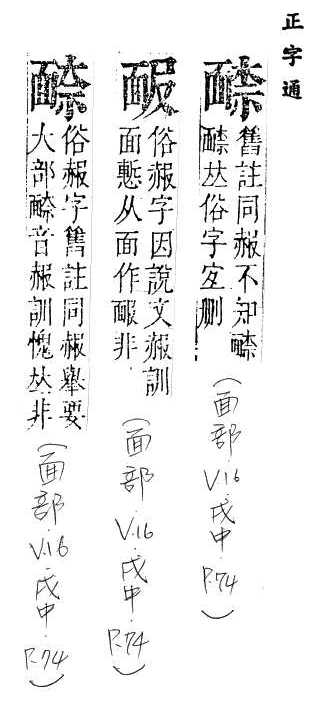 正字通
舊註同赧不知
𠀤俗字宐刪
(面部 V.16 戌中 P.74)
俗赧字因說文赧訓
面慙从面作 非
(面部 V.16 戌中 P.74)
俗赧字舊註同赧舉要
大部 音赧訓愧𠀤非
(面部 V.16 戌中 P.74)